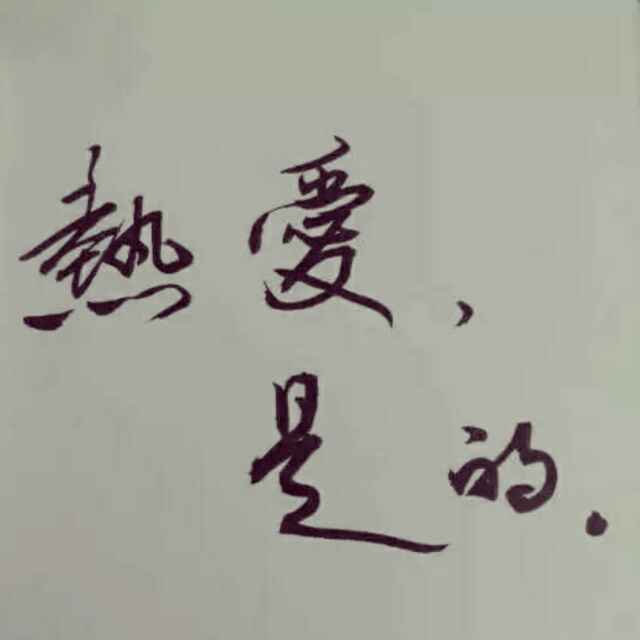 熱愛、
是的.